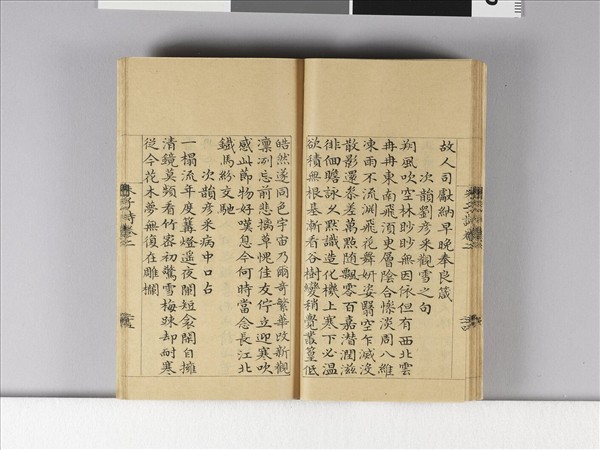 故人司獻納早晚奉良箴
次韻劉彥采觀雪之句
朔風吹空林眇眇無因依但有西北雲
冉冉東南飛須東層陰合慘淡周八維
凍雨不流淵飛花舞妍姿翳空乍滅沒
散影還參差萬點隨飄零百嘉潛潤滋
徘徊瞻詠久默識造化機上寒下必溫
欲積無根基漸看谷樹變稍覺叢篁低
皓然遂同色宇宙乃爾奇繁華改新觀
凜冽忘前悲摛草愧佳友佇立迎寒吹
感此節物好嘆息今何時當念長江北
鐵馬紛交馳
次韻彥采病中口占
一榻流年度篝燈遥夜闌短衾閑自擁
清鏡莫頻看竹密初驚雪梅踈却耐寒
從今花木夢無復在雕欄